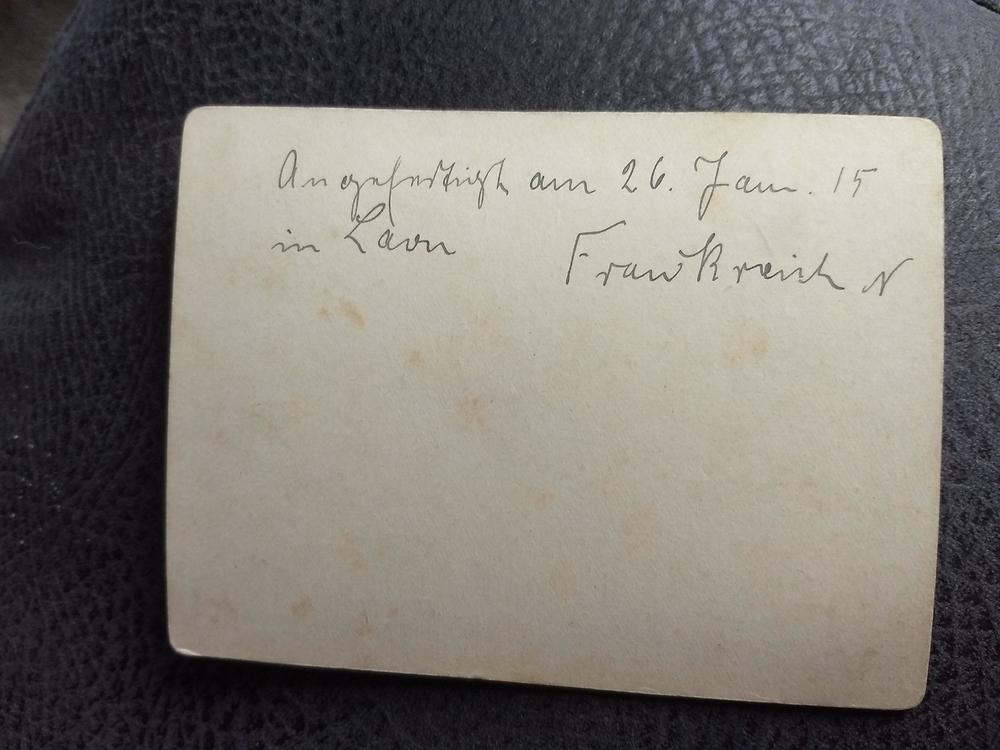 Angefertigt am 26. Jan. 15
in Laon Frankreich N